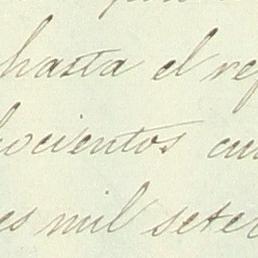 hasta el ref
ocientos cu
es mil seter